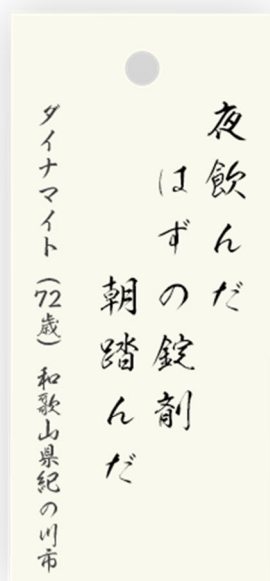 夜飲んだ
はずの錠剤
朝踏んだ
ダイナマイト（72歳）和歌山県紀の川市